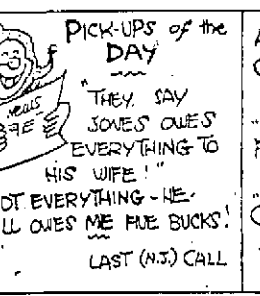 PICK-UPS of the
DAY
"THEY SAY
JONES OWES
EVERYTHING TO
HIS WIFE!"
OT EVERYTHING - HE
LL OWES ME FIVE BUCKS!
LAST (N.J.) CALL